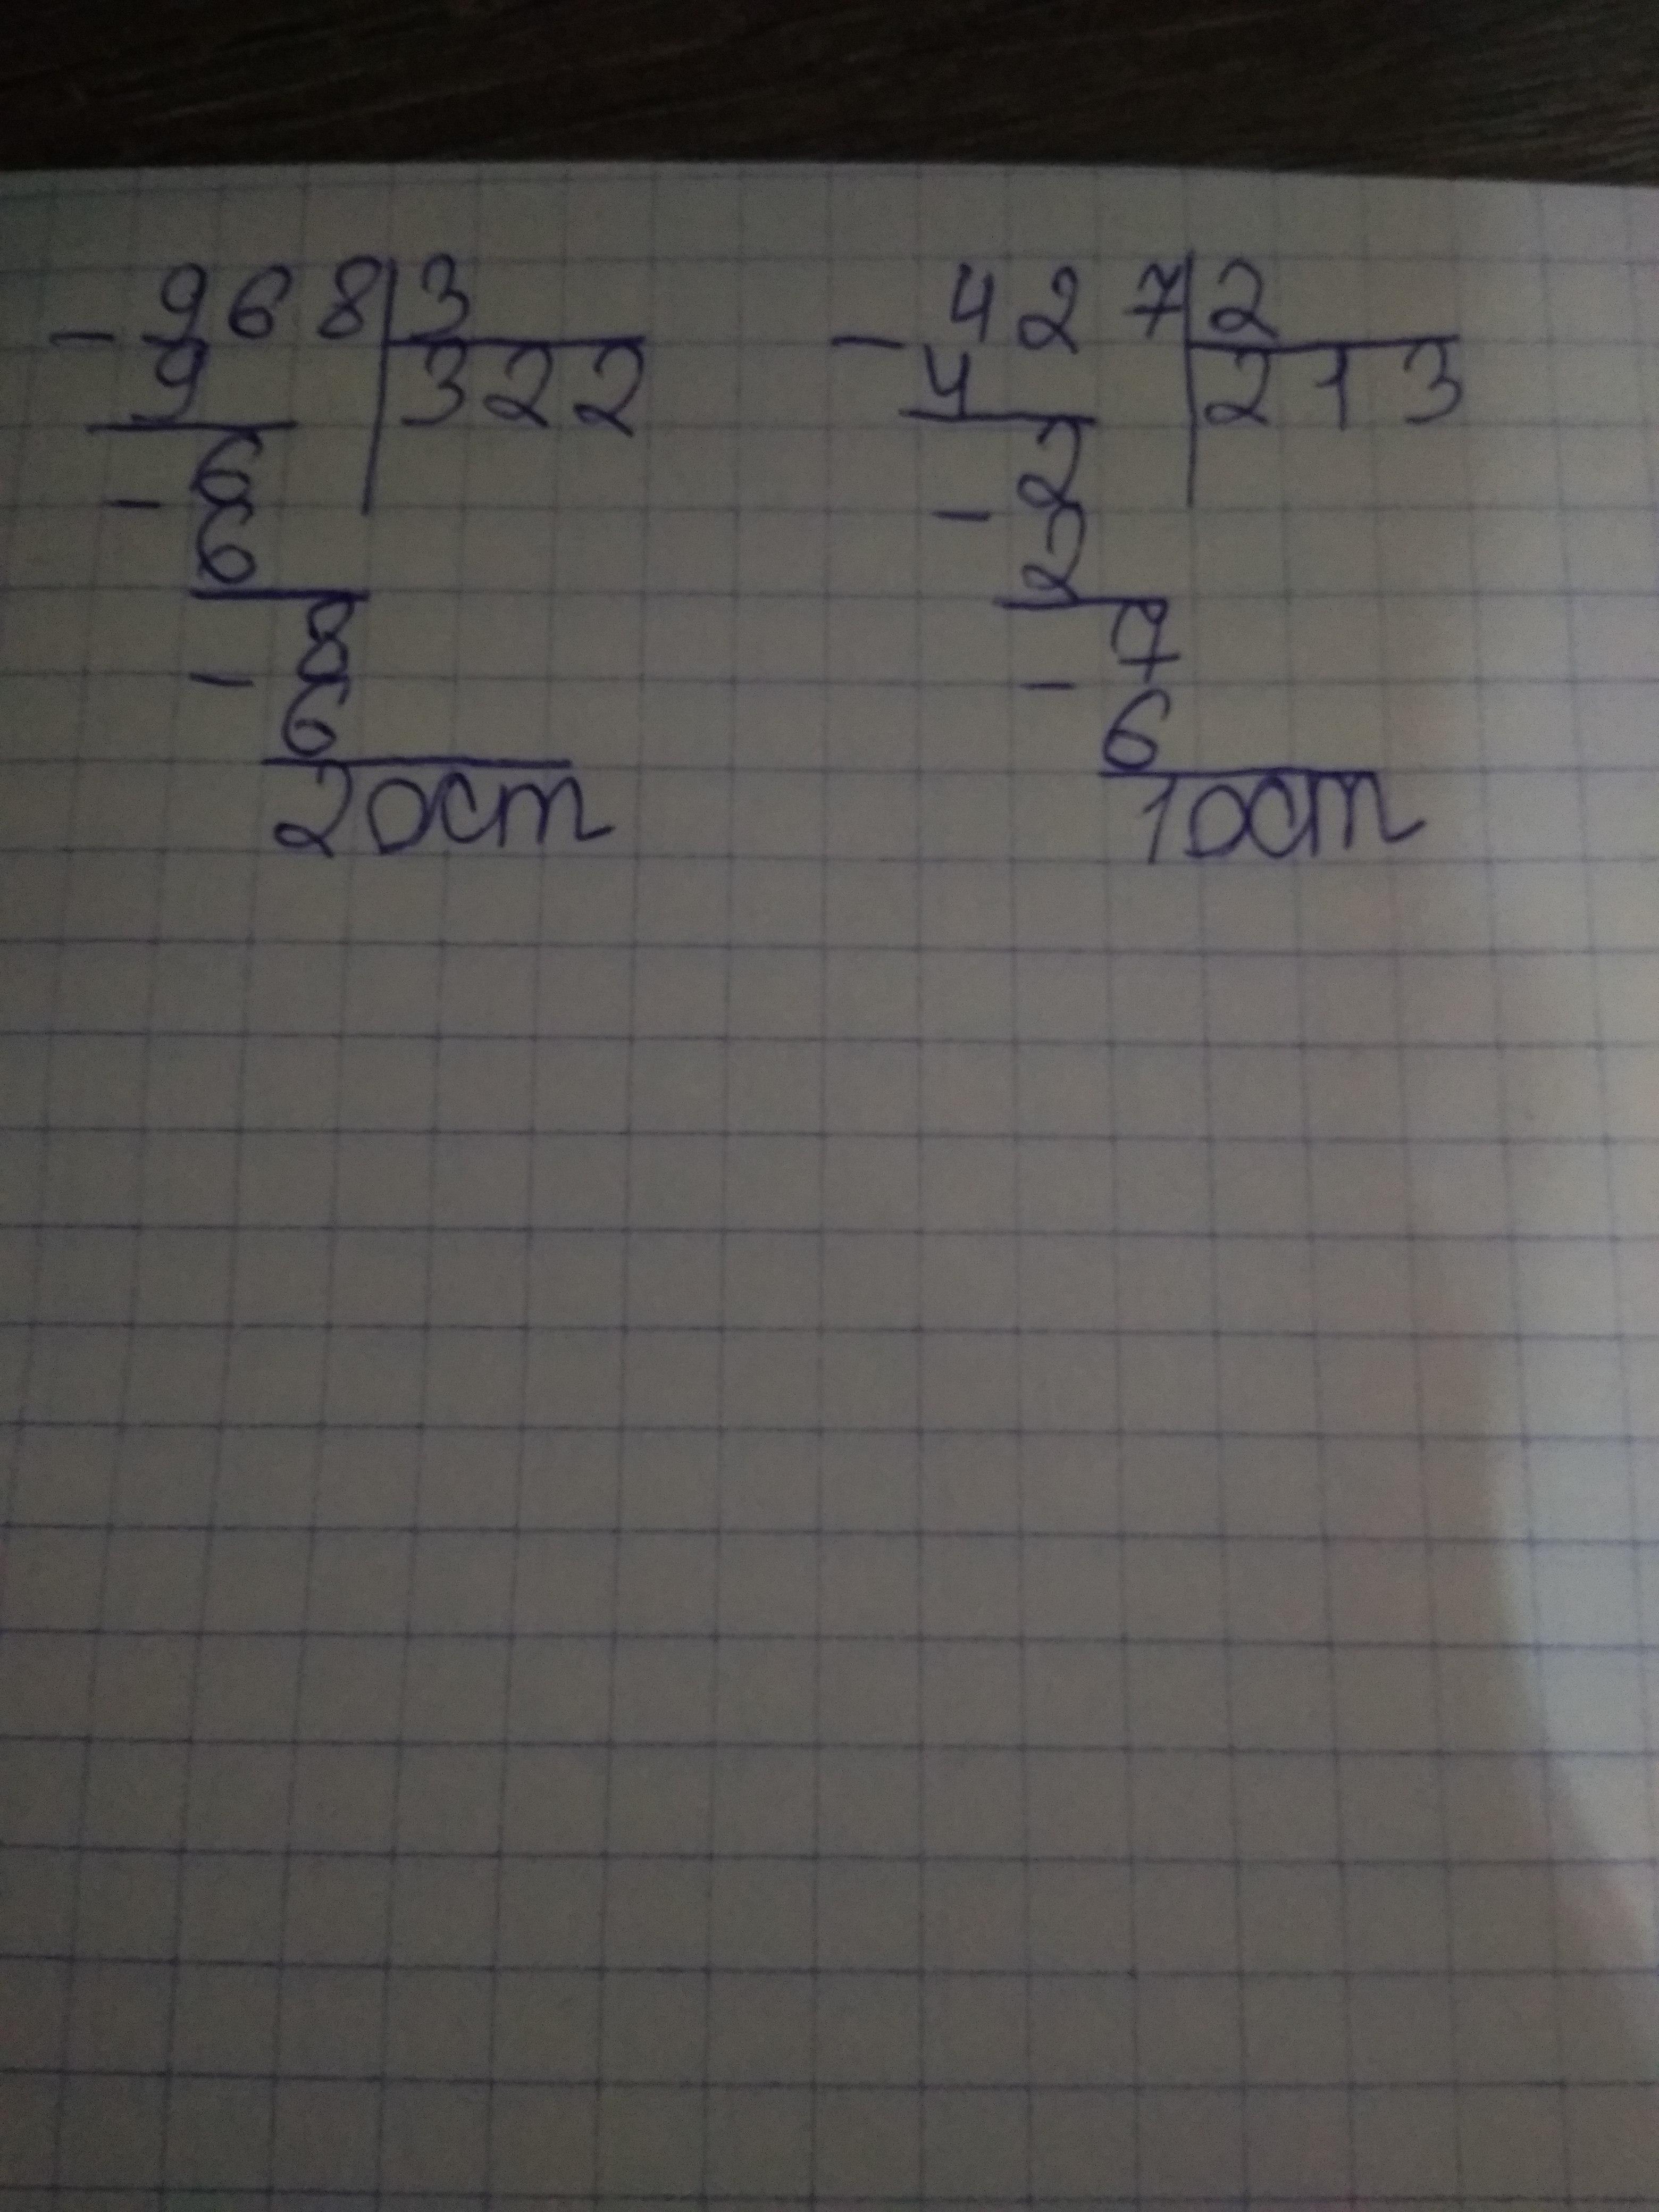 - 968 3
9 322
- 6
6
- 8
6
2 ост
- 427 2
4 213
- 2
2
- 7
6
1 ост